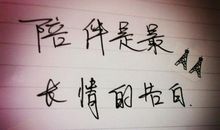 陪伴是最
长情的告白